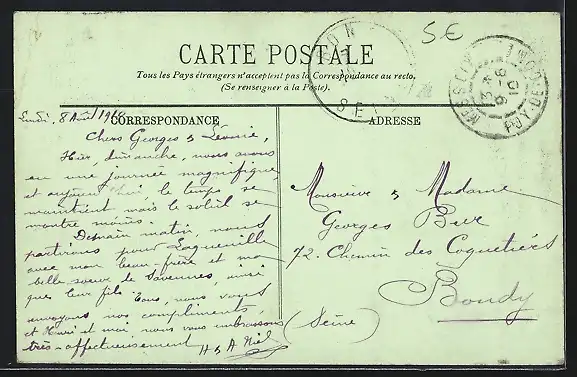 CARTE POSTALE
Tous les Pays étrangers n'acceptent pas la Correspondance au recto.
(Se renseigner à la Poste).
CORRESPONDANCE
ADRESSE
Lundi, 8 Août 1910
Chers Georges & Léonie,
Hier, dimanche, nous avons
eu une journée magnifique,
et aujourd'hui, le temps se
maintient mais le soleil se
montre moins.
Demain matin, nous
partirons pour Laqueuille
avec mon beau-frère et ma
belle-soeur de Savennes, ainsi
que leur fils. Tous, nous vous
envoyons nos compliments,
et Henri et moi nous vous embrassons
très-affectueusement
H & A Niel
Monsieur & Madame
Georges
72, Chemin des Coquetiers
Bondy
(Seine)
SE
8-8
10
PUY DE DOME